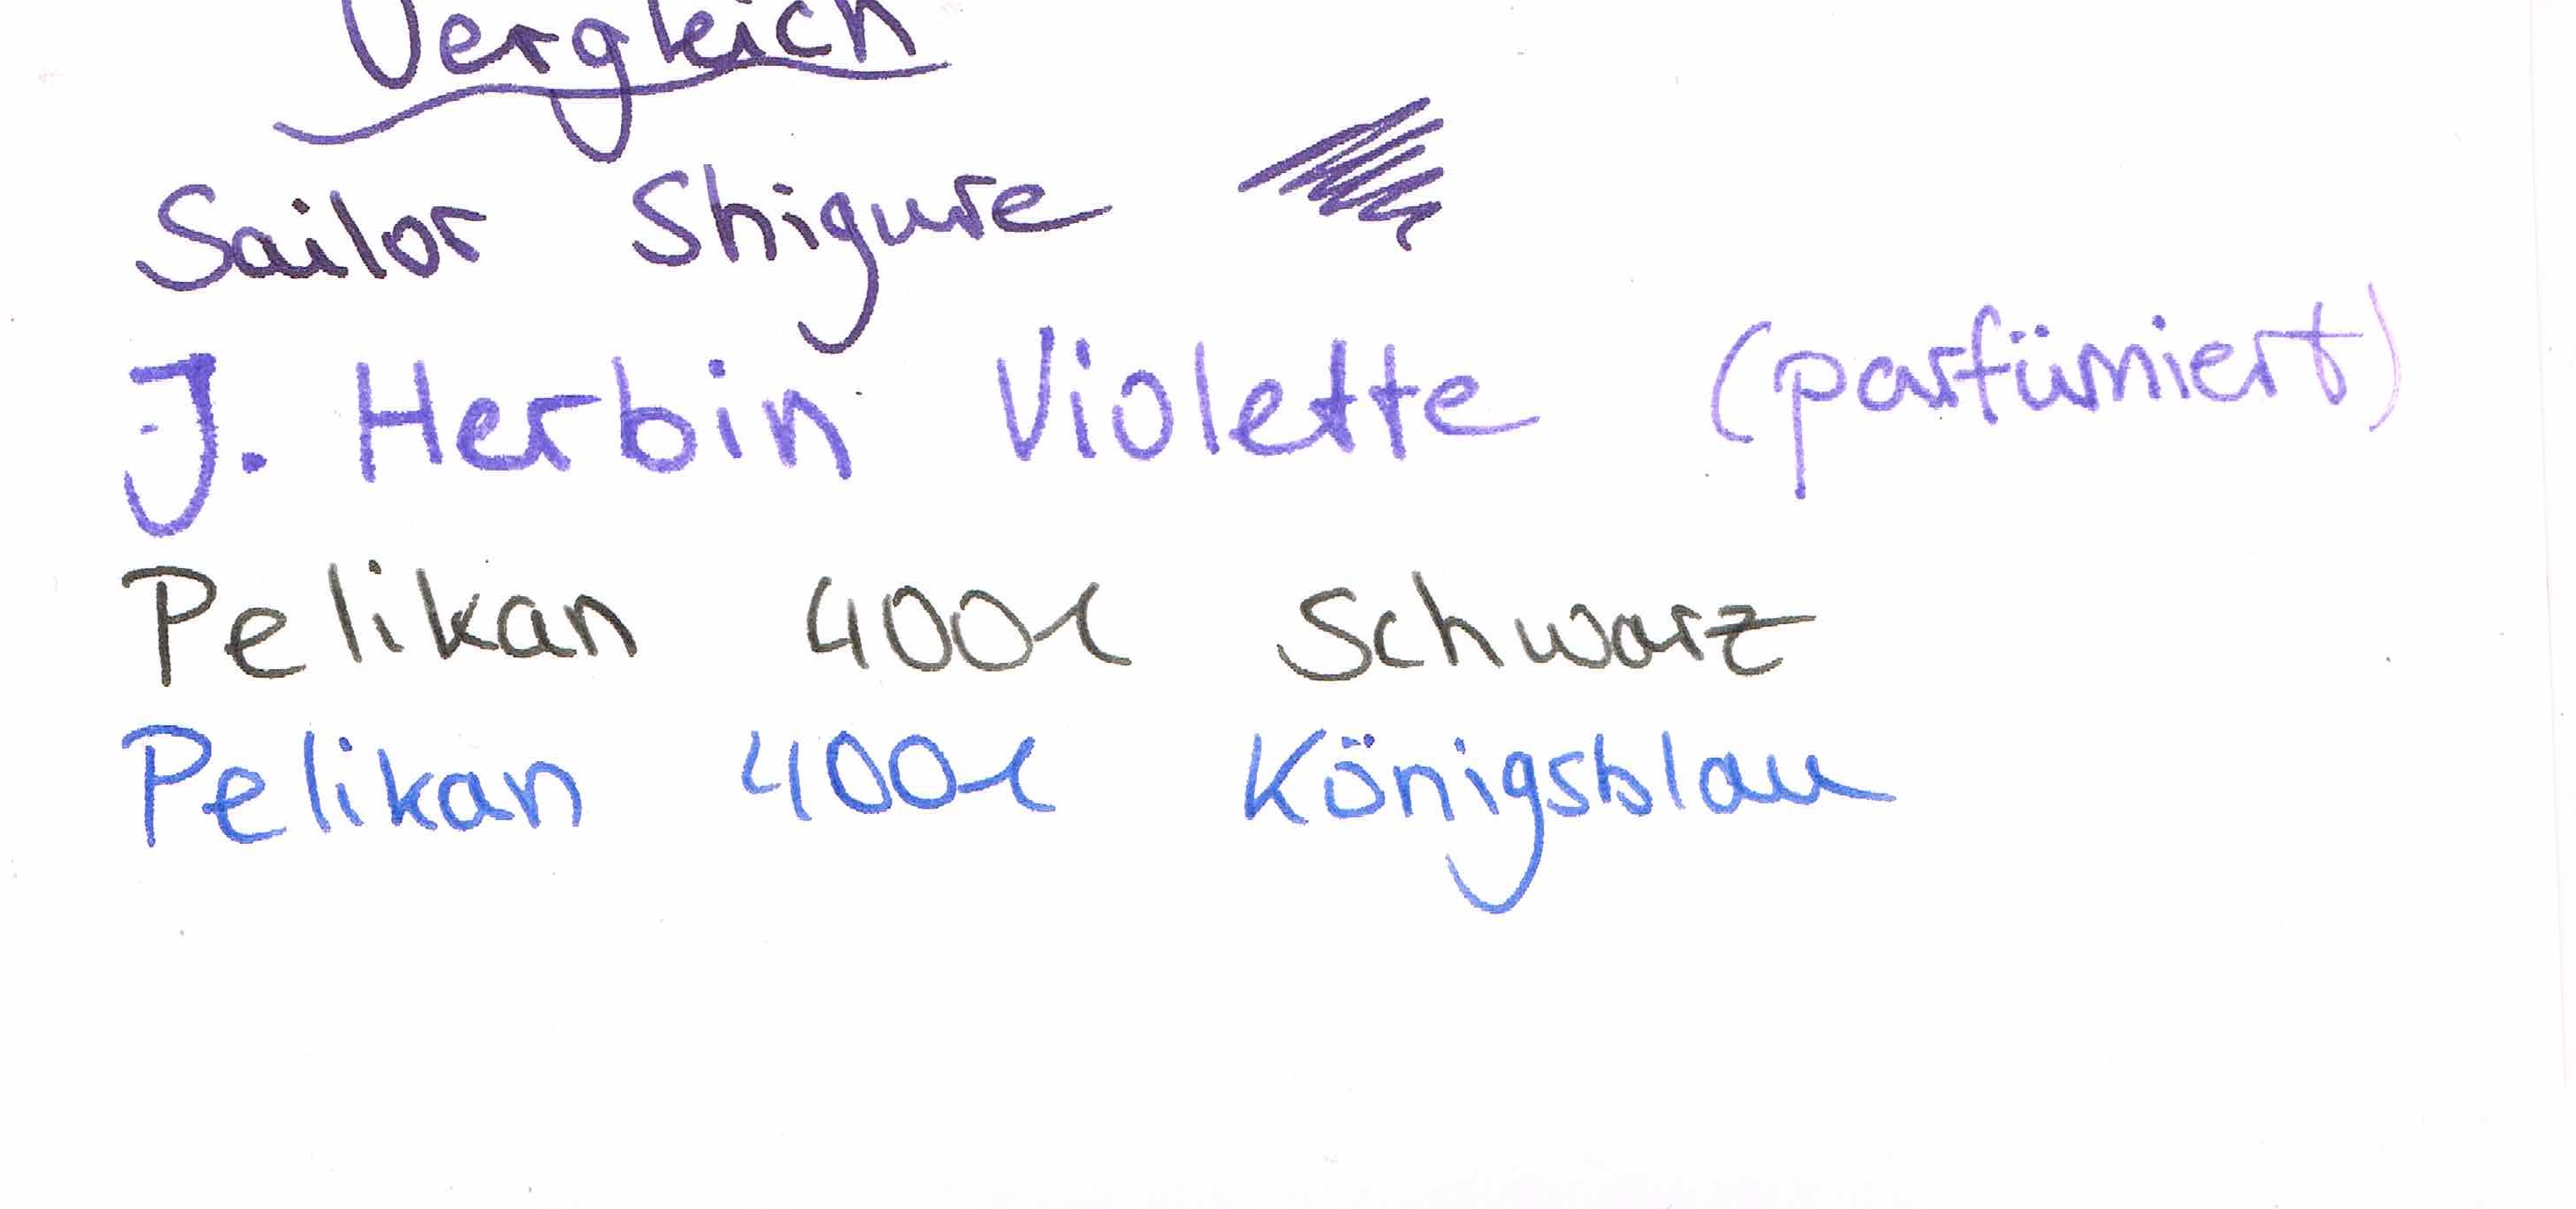 Vergleich
Sailor Shigure
J. Herbin Violette (parfümiert)
Pelikan 4001 Schwarz
Pelikan 4001 Königsblau